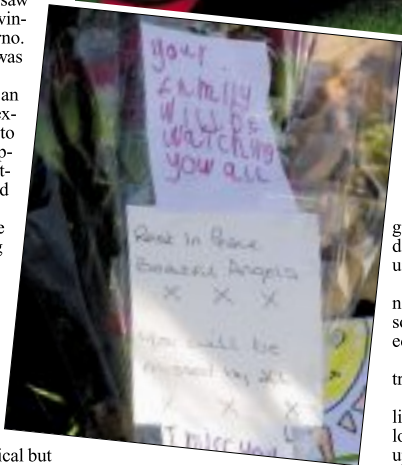 saw
vin-
rno.
was
an
ex-
to
p-
t-
d
e
g
ical but
your
family
will be
watching
you all
Rest In Peace
Beautiful Angels
x x x
You will be
missed by all
x x x
I miss you
g
d
u
n
so
ec
tr
li
lo
u